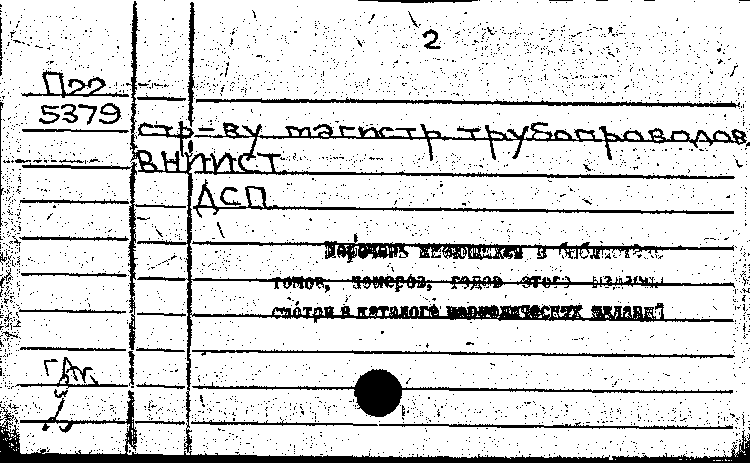 2
П22
5379
стр-ву магистр. трубопроводов.
ВНИИСТ.
ДСП.
Перечень имеющихся в библиотеке
томов, номеров, годов этого издания
смотри в каталоге периодических изданий